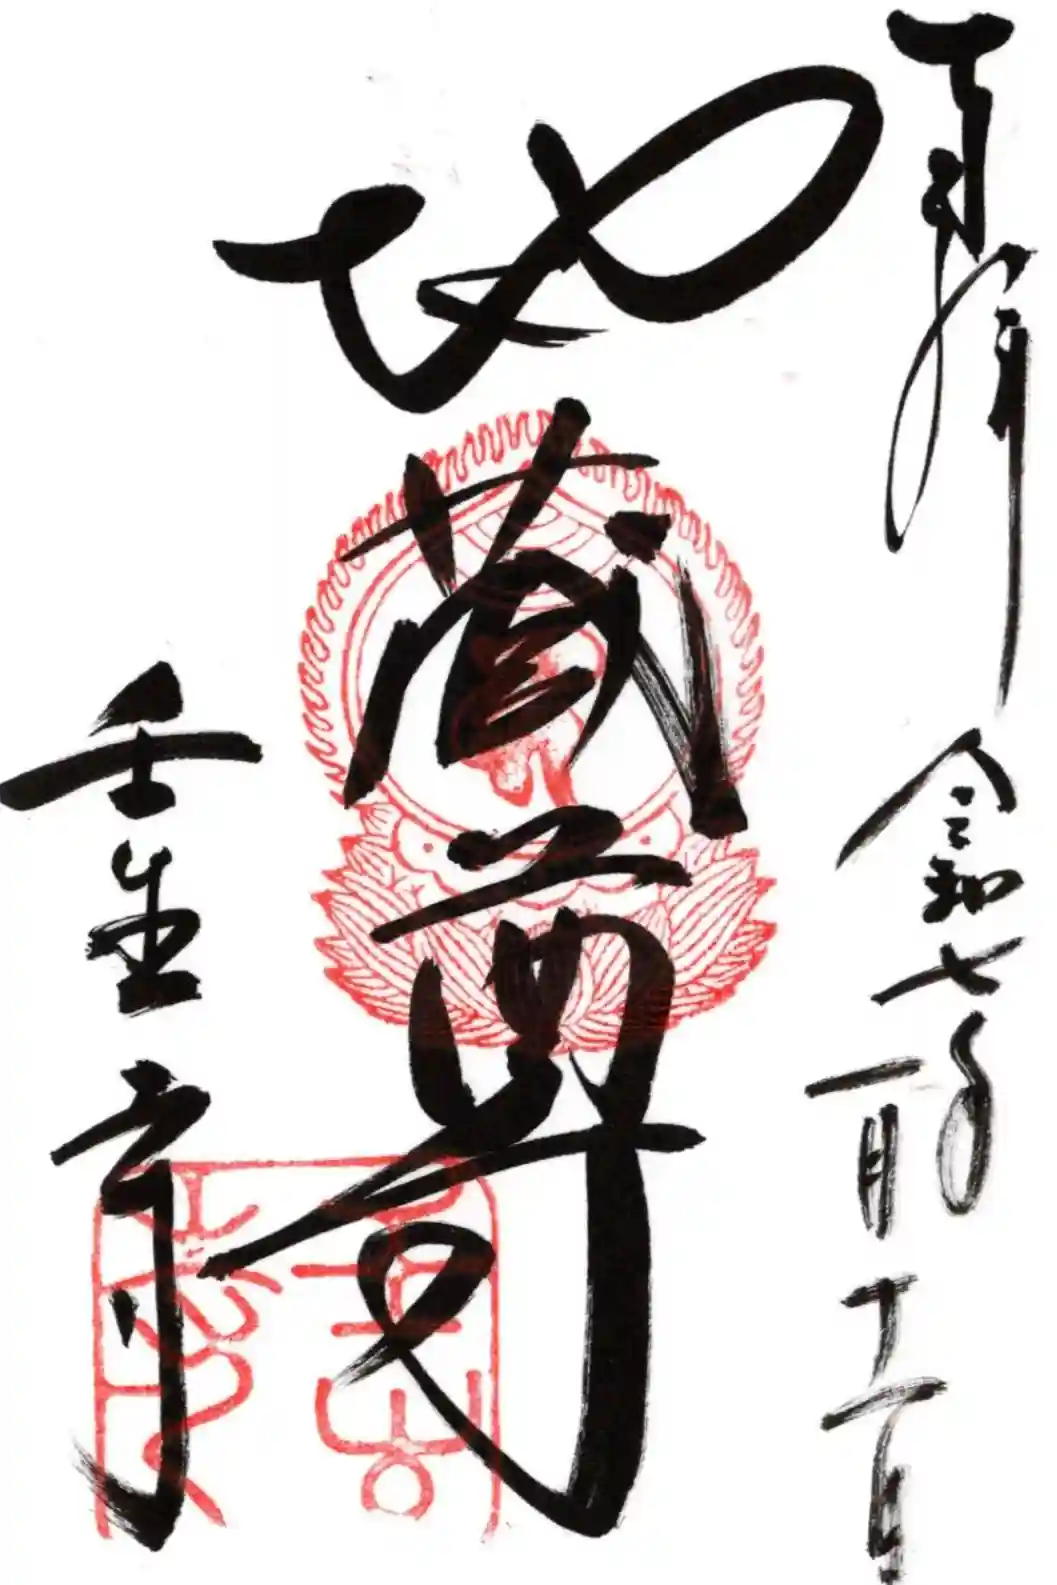 奉拝
令和七年
一月十一日
地蔵尊
壬生寺